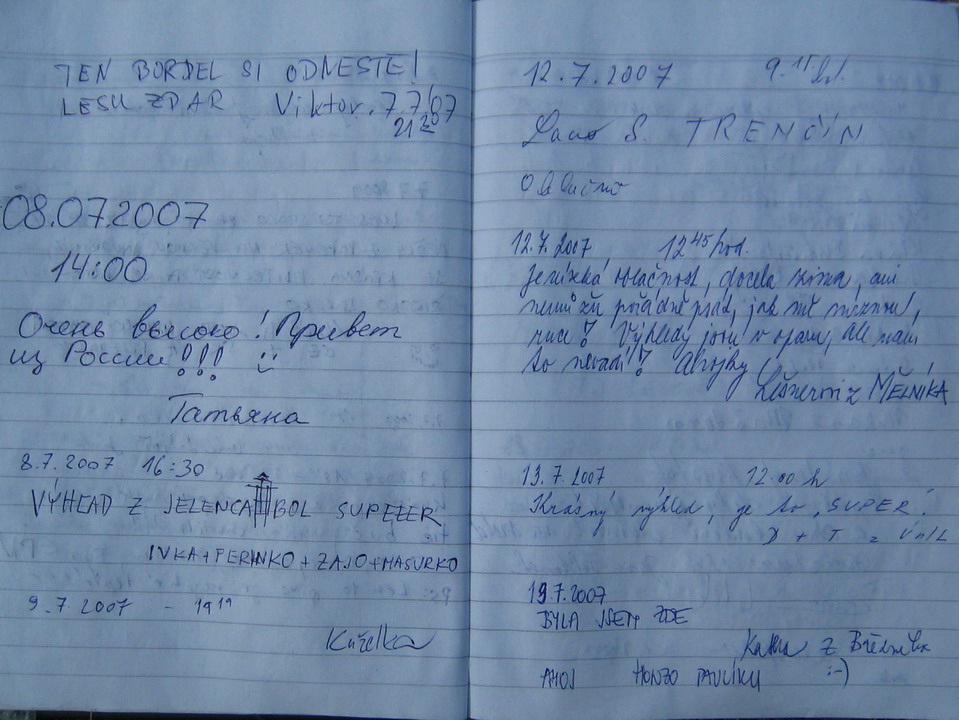 TEN BORDEL SI ODNESTE!
LESU ZDAR Viktor. 7.7.07
21 20
08.07.2007
14:00
Очень высоко! Привет
из России!!! :-)
Татьяна
8.7.2007 16:30
VÝHĽAD Z JELENCA BOL SUPEŁER
IVKA+FERINKO+ZAJO+MASURKO
9.7.2007 - 19 19
Kuželka
12.7.2007 9.15
Laco S. TRENČÍN
Oblačno
12.7.2007 12 45 hod.
jenízká oblačnost, docela zima, ani
nemůžu pořádně psát, jak mě mrznou,
ruce! Výhledy jsou v oparu, ale nám
to nevadí! Ahojky
z MĚLNÍKA
13.7.2007 12.00 h
Krásný výhled, je to "SUPER!
D + T z Ústí/L
19.7.2007
BYLA JSEM ZDE
Katka z
AHOJ HONZO PAVLÍKU :-)